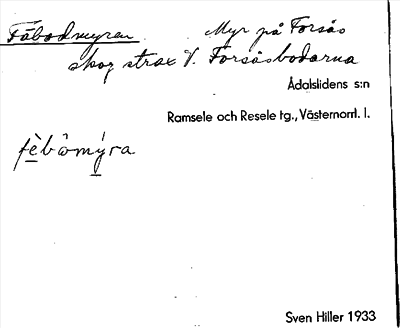 Fäbodmyran Myr på Forsås
skog strax V. Forsåsbodarna
Ådalslidens s:n
Ramsele och Resele tg., Västernorrl. l.
fèbômýra
Sven Hiller 1933